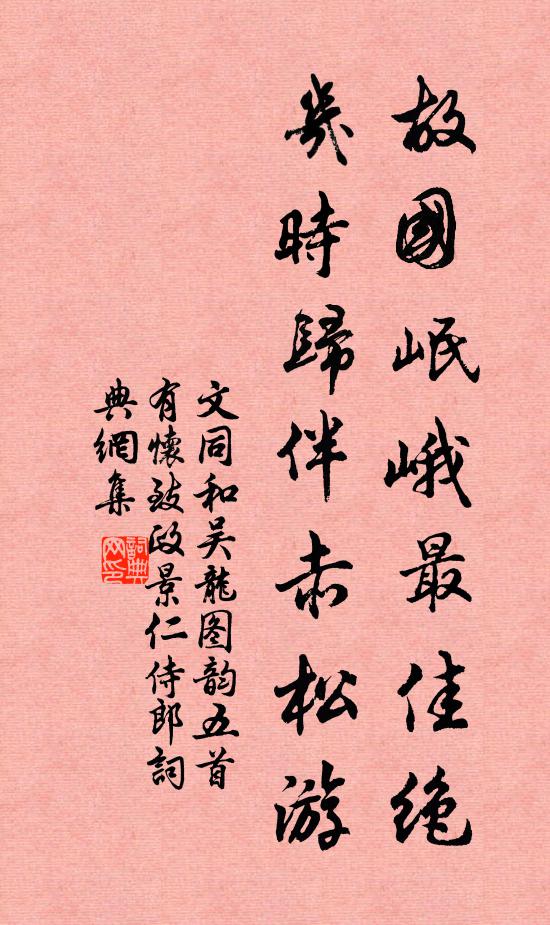 故國岷峨最佳绝
幾時歸伴赤松游
文同和吴龍图韵五首
有懷致政景仁侍郎詞
典網集
詞典
网印